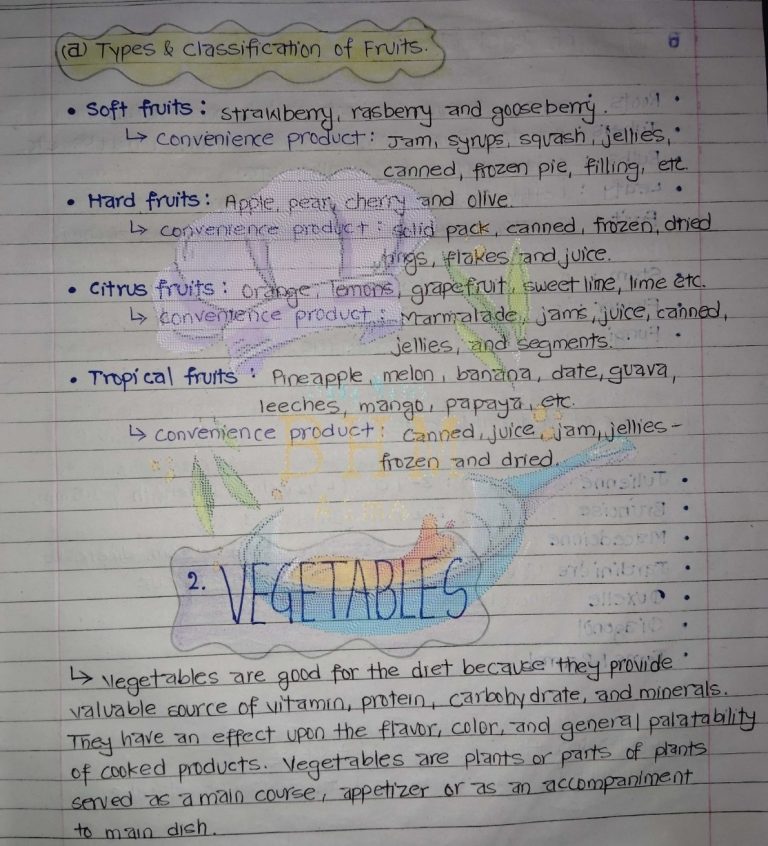 (a) Types & classification of Fruits.
• Soft fruits : strawberry, rasberry and gooseberry.
↳ convenience product : Jam, syrups, squash, jellies,
canned, frozen pie, filling, etc.
• Hard fruits : Apple, pear, cherry and olive
↳ convenience product : solid pack, canned, frozen, dried
rings, flakes and juice.
• Citrus fruits : orange, lemons, grapefruit, sweet lime, lime etc.
↳ convenience product : Marmalade, jams, juice, canned,
jellies, and segments.
• Tropical fruits : Pineapple, melon, banana, date, guava,
leeches, mango, papaya, etc.
↳ convenience product : canned, juice, jam, jellies -
frozen and dried.
BHM
2. VEGETABLES
↳ vegetables are good for the diet because they provide
valuable source of vitamin, protein, carbohydrate, and minerals.
They have an effect upon the flavor, color, and general palatability
of cooked products. Vegetables are plants or parts of plants
served as a main course, appetizer or as an accompaniment
to main dish.